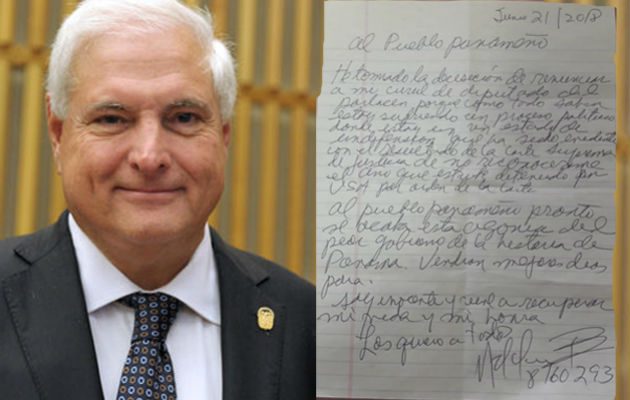 Junio 21/2018
Al Pueblo panameño
He tomado la decisión de renunciar
a mi curul de diputado del
parlacen porque como todos saben
estoy sufriendo un proceso político
donde estoy en un estado de
indefensión
con el de la Corte Suprema
de Justicia de no reconocerme
el año que estuve detenido por
USA por orden de la Corte
Al pueblo panameño pronto
se acaba esta agonia del
peor gobierno de la historia de
Panama. Vendran mejores dias
para.
Soy inocente y a recuperar
mi y mi honra
Los quiero a Todos
8 160 293